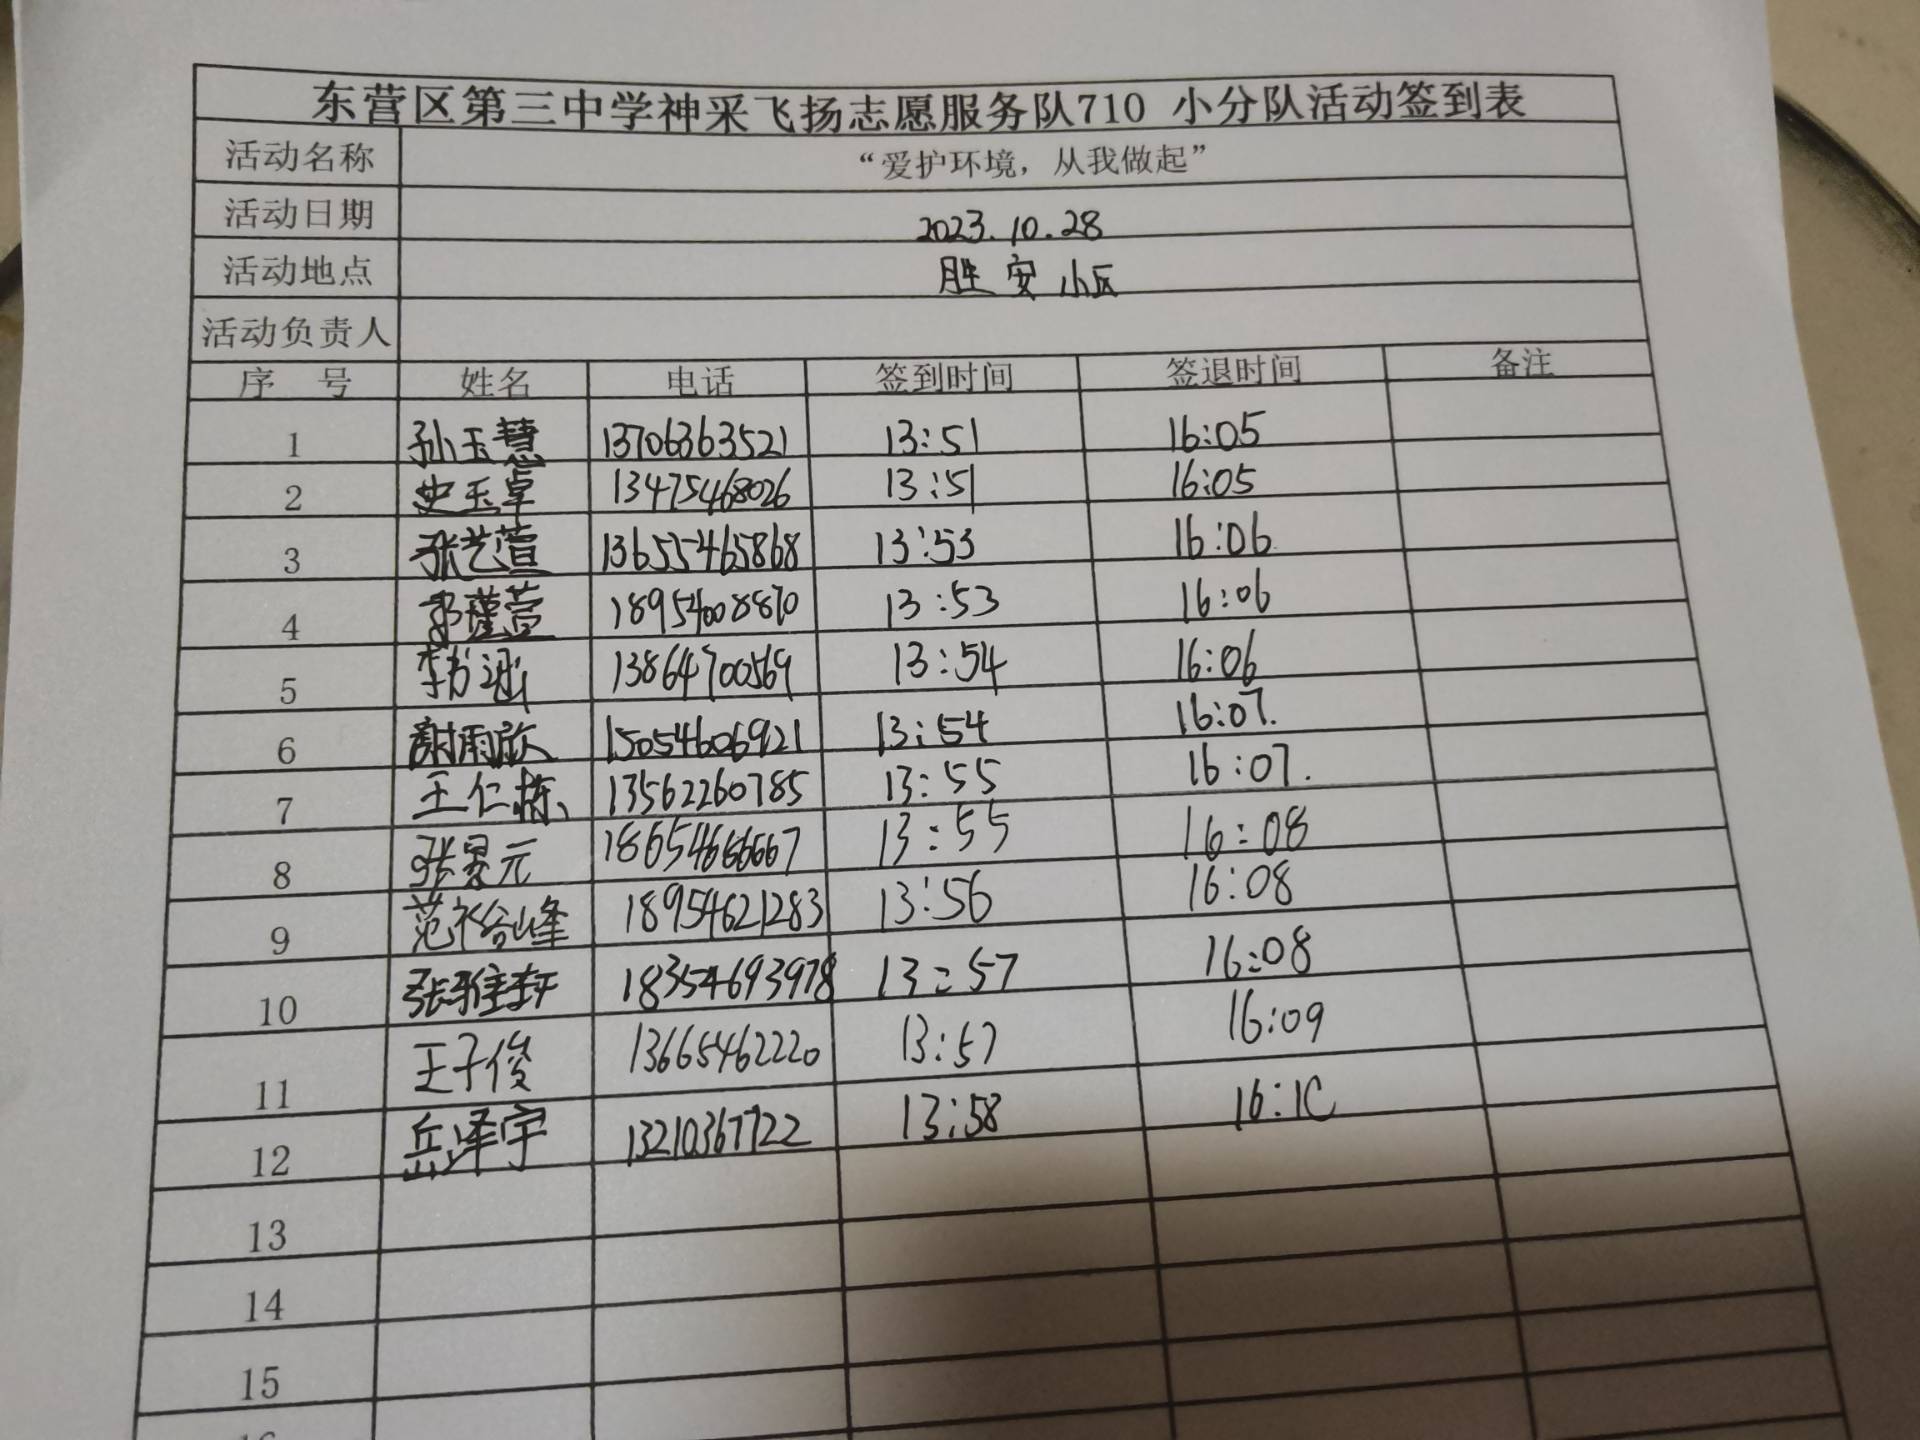 东营区第三中学神采飞扬志愿服务队710 小分队活动签到表
活动名称 “爱护环境，从我做起”
活动日期 2023.10.28
活动地点 胜安小区
活动负责人
序 号 姓名 电话 签到时间 签退时间 备注
1 孙玉慧 13706363521 13:51 16:05
2 史玉卓 13475468026 13:51 16:05
3 张艺萱 13655465868 13:53 16:06
4 18954008870 13:53 16:06
5 李书涵 13864700569 13:54 16:06
6 谢雨欣 15054606921 13:54 16:07.
7 王仁栋 13562260785 13:55 16:07.
8 张昱元 18654666667 13:55 16:08
9 范裕峰 18954621283 13:56 16:08
10 张雅轩 18354693978 13:57 16:08
11 王子俊 13665462220 13:57 16:09
12 岳泽宇 13210367722 13:58 16:10
13
14
15